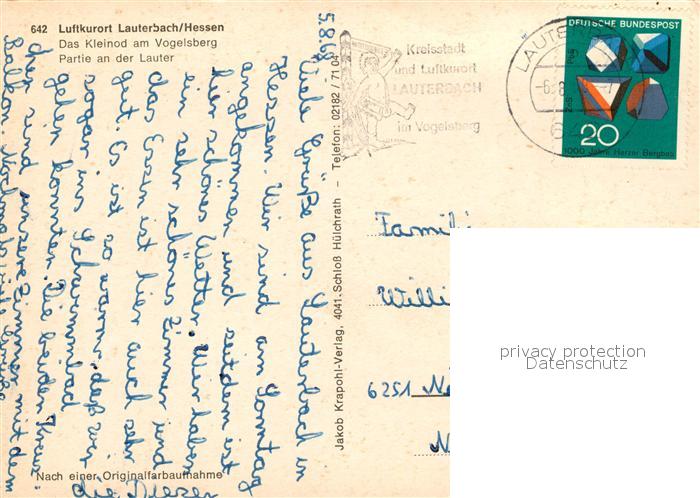 642 Luftkurort Lauterbach/Hessen
Das Kleinod am Vogelsberg
Partie an der Lauter
5.8.68
Viele Grüße aus Lauterbach in
Hessen. Wir sind am Sonntag
angekommen und seitdem ist
hier schönes Wetter. Wir haben
ein sehr schönes Zimmer und
das Essen ist hier auch sehr
gut. Es ist so warm, daß wir
sogar ins Schwimmbad
gehen konnten. Die beiden Kreuz-
chen sind unsere Zimmer mit dem
Balkon. Nochmals viele Grüße
Nach einer Originalfarbaufnahme
Jakob Krapohl-Verlag, 4041 Schloß Hülchrath – Telefon: 02182 / 71 04
Kreisstadt
und Luftkurort
LAUTERBACH
im Vogelsberg
LAUTER
DEUTSCHE BUNDESPOST
20
1000 Jahre Harzer Bergbau
Famili
Willi
6251 Ne
N
privacy protection
Datenschutz